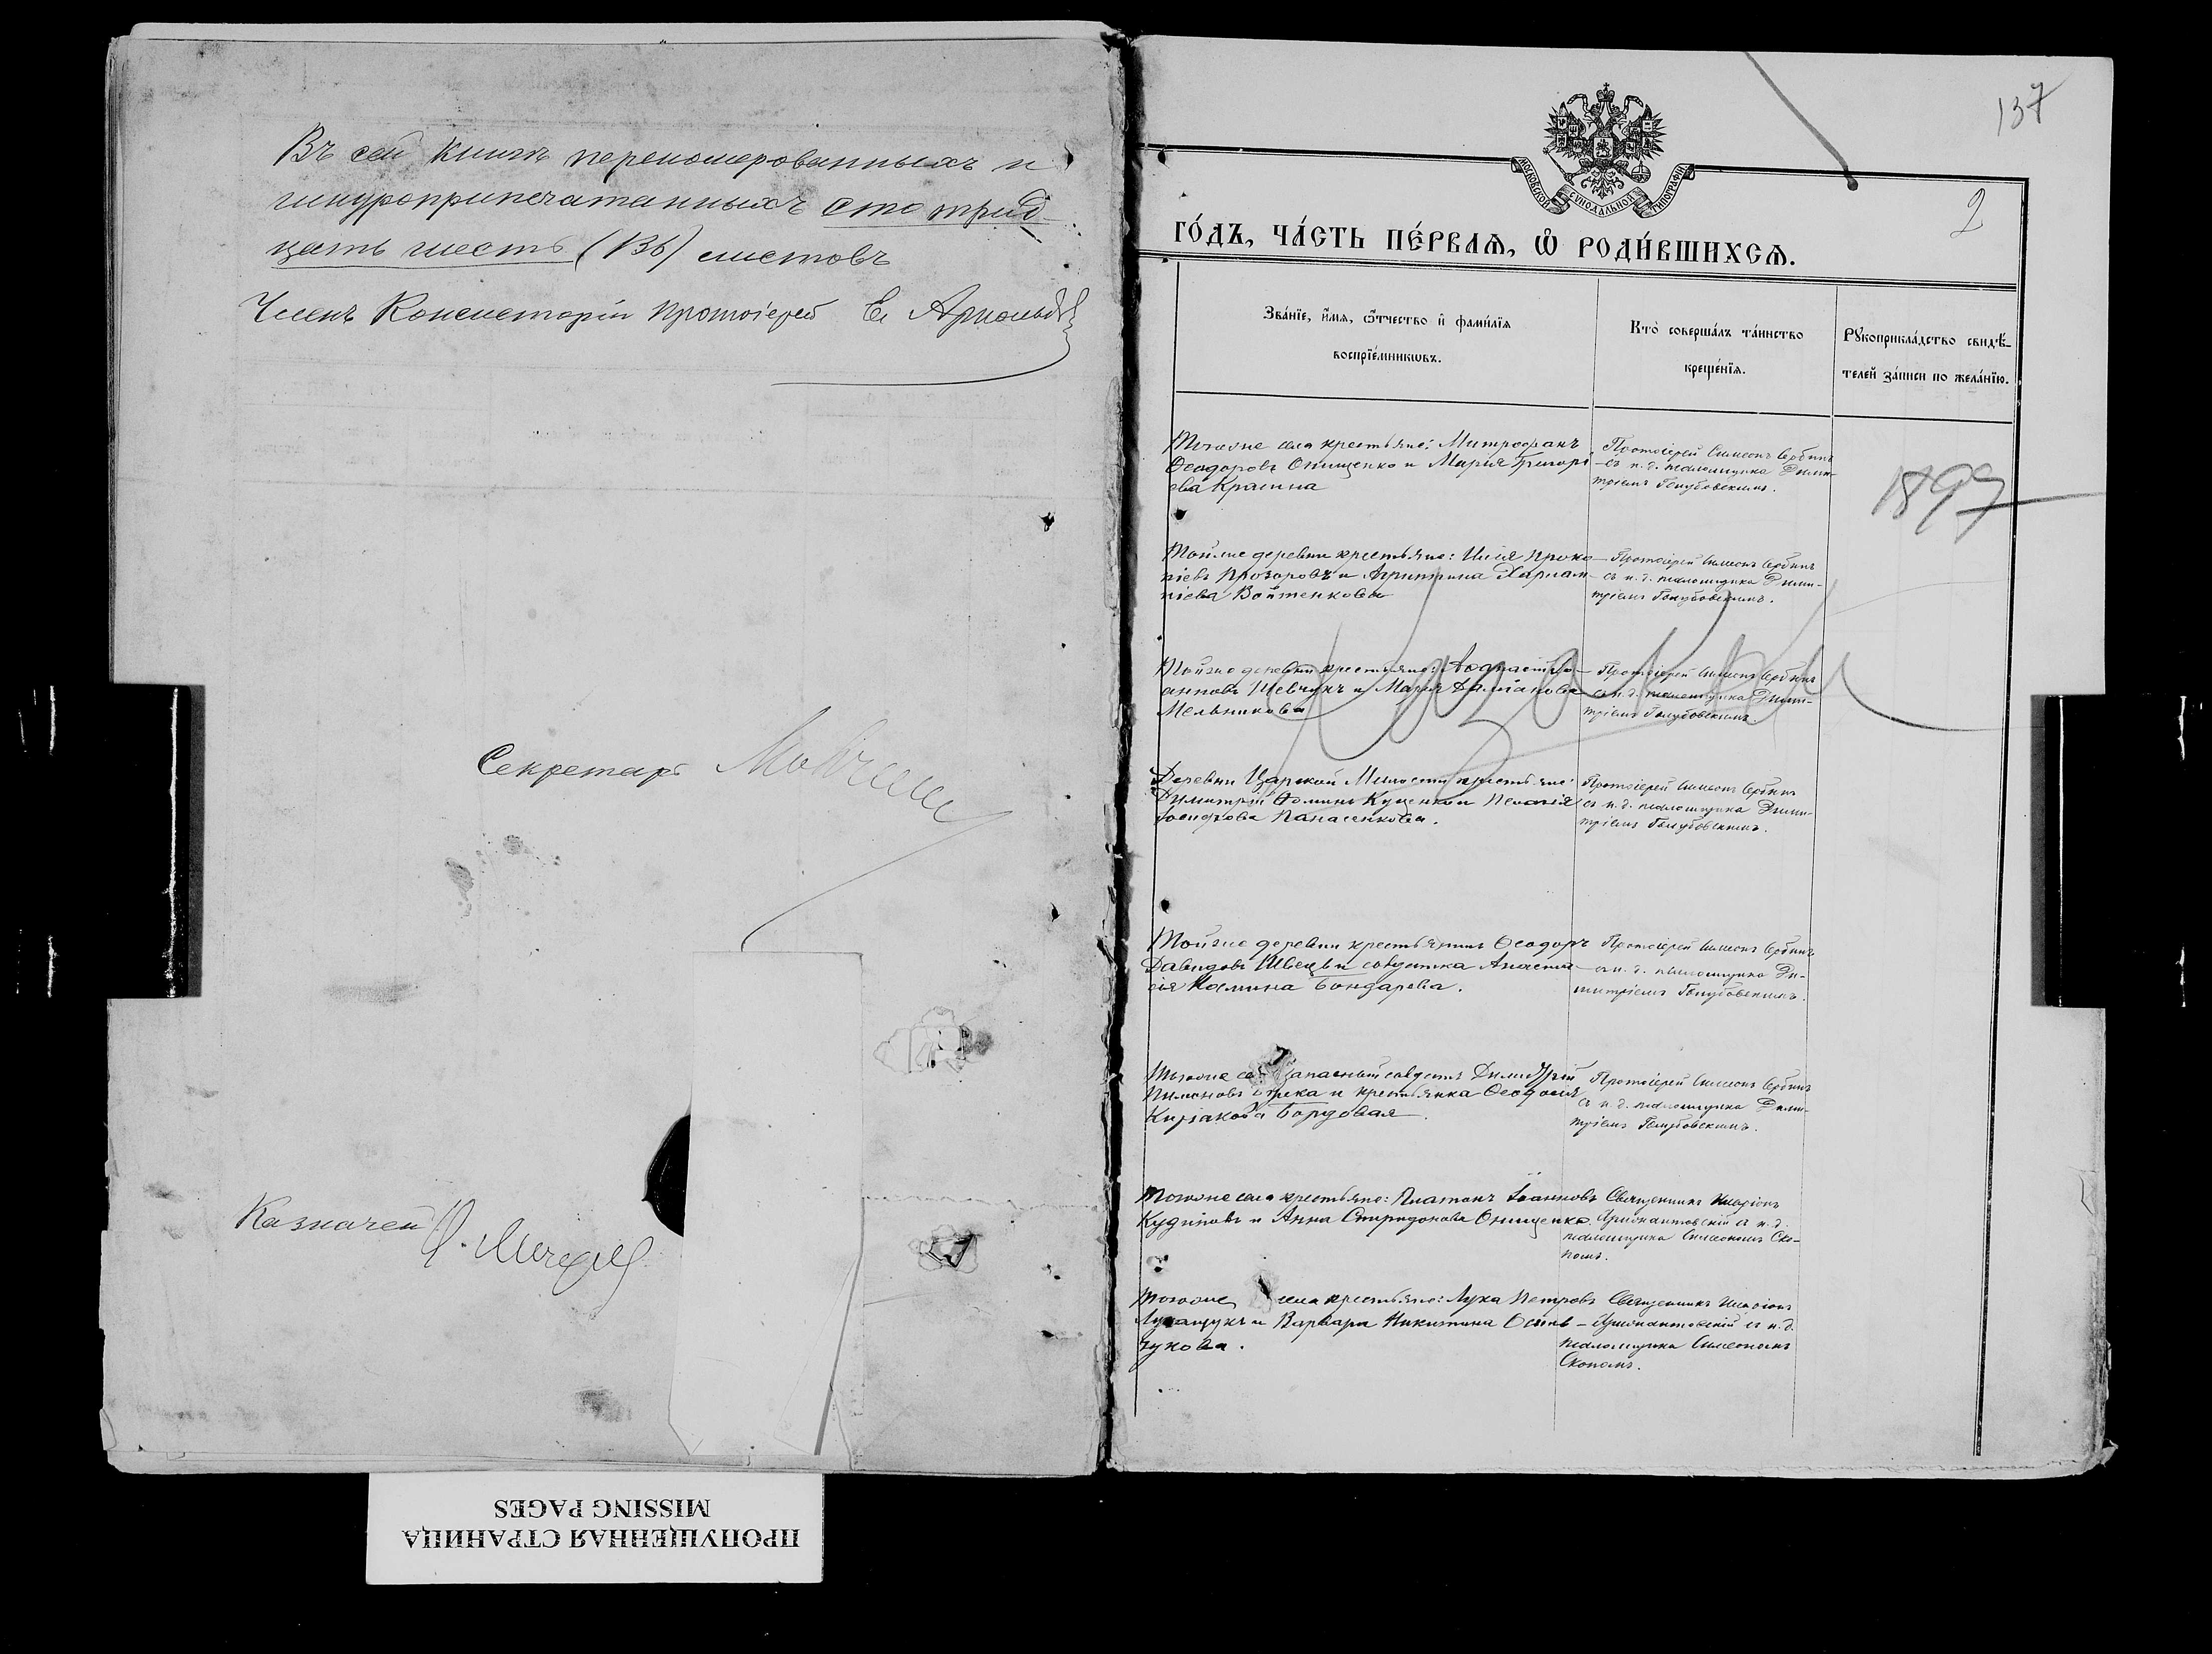 Въ сей книгѣ перенomерованныхъ и
шнуроприпечатанныхъ сто трид-
цать шесть (136) листовъ
Членъ Консисторіи Протоіерей Е. Арнольдъ
Секретарь
Казначей
ПРОПУЩЕННАЯ СТРАНИЦА
MISSING PAGES
137
МОСКОВСКОЙ СѴНОДАЛЬНОЙ ТИПОГРАФІИ
2
ГО́ДЪ, ЧА́СТЬ ПЕ́РВАѦ, Ѽ РОДИ́ВШИХСѦ.
Зва́нїе, и҆́мѧ, ѻ҆́тчество и҆ фами́лїѧ
воспрїе́мникѡвъ.
Кто̀ соверша́лъ та́инство
креще́нїѧ.
Рꙋкоприкла́дство свидѣ́-
телей за́писи по жела́нїю.
Тогоже села крестьяне: Митрофанъ
Ѳеодоровъ Онищенко и Марія Григорі-
ева Красина
Протоіерей Симеонъ Сербинъ
съ и. д. псаломщика Дими-
тріемъ Голубовскимъ.
1899
Тойже деревни крестьяне: Илія Проко-
піевъ Прозоровъ и Агрипина Харлам-
піева Войтенкова
Протоіерей Симеонъ Сербинъ
съ и. д. псаломщика Дими-
тріемъ Голубовскимъ.
Тойже деревни крестьяне: Іо-
анновъ Шевчукъ и Марія Даміанова
Мельникова
Протоіерей Симеонъ Сербинъ
съ и. д. псаломщика Дими-
тріемъ Голубовскимъ.
Деревни Царской Милости крестьяне:
Димитрій Ѳоминъ Куценко и Пелагія
Іосифова Панасенкова.
Протоіерей Симеонъ Сербинъ
съ и. д. псаломщика Дими-
тріемъ Голубовскимъ.
Тойже деревни крестьянинъ Ѳеодоръ
Давидовъ Швецъ и солдатка Анаста-
сія Космина Бондарева.
Протоіерей Симеонъ Сербинъ
съ и. д. псаломщика Ди-
митріемъ Голубовскимъ.
Тогоже запасный солдатъ Димитрій
Пимоновъ и крестьянка Ѳеодосія
Киріакова Бордовая.
Протоіерей Симеонъ Сербинъ
съ и. д. псаломщика Дими-
тріемъ Голубовскимъ.
Тогоже села крестьяне: Платонъ Іоанновъ
Кудиновъ и Анна Спиридонова Онищенко.
Священникъ Иларіонъ
съ и. д.
псаломщика Симеономъ Ско-
помъ.
Тогоже села крестьяне: Лука Петровъ
Лукащукъ и Варвара Никитина
чукова.
Священникъ Иларіонъ
съ и. д.
псаломщика Симеономъ
Скопомъ.